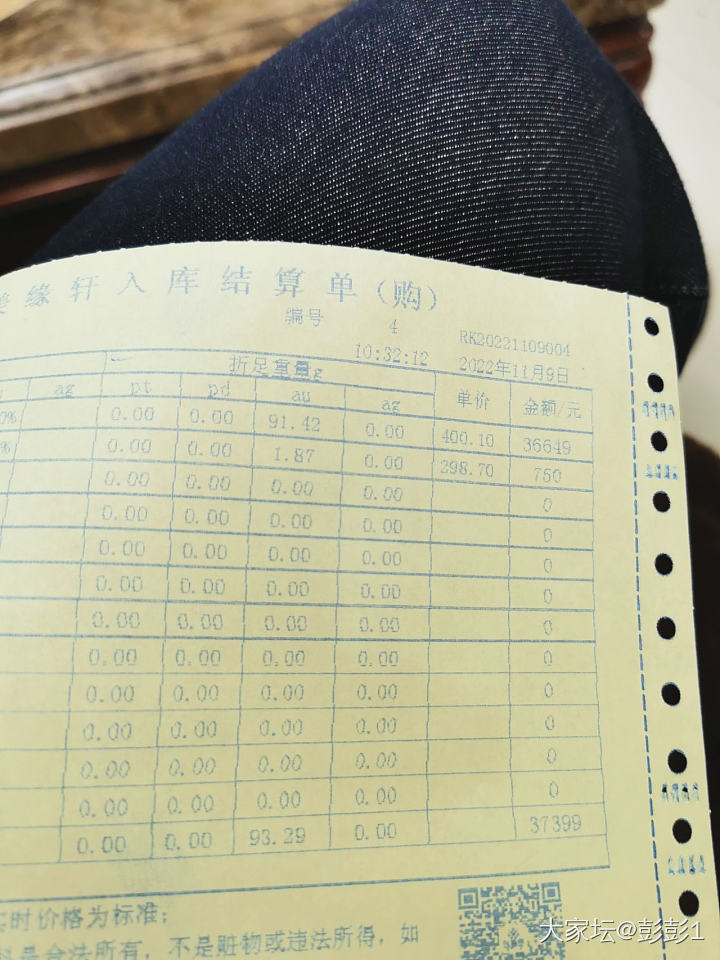 缘轩入库结算单(购)
编号 4 RK20221109004
10:32:12 2022年11月9日
折足重量g 单价 金额/元
ag pt pd au ag
0% 0.00 0.00 91.42 0.00 400.10 36649
% 0.00 0.00 1.87 0.00 298.70 750
0.00 0.00 0.00 0.00 0
0.00 0.00 0.00 0.00 0
0.00 0.00 0.00 0.00 0
0.00 0.00 0.00 0.00 0
0.00 0.00 0.00 0.00 0
0.00 0.00 0.00 0.00 0
0.00 0.00 0.00 0.00 0
0.00 0.00 0.00 0.00 0
0.00 0.00 0.00 0.00 0
0.00 0.00 0.00 0.00 0
0.00 0.00 93.29 0.00 37399
实时价格为标准;
料是合法所有，不是赃物或违法所得，如
大家坛@彭彭1